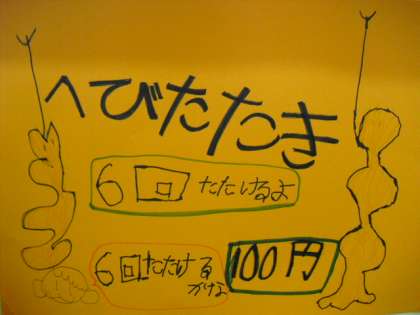 へびたたき
6回たたけるよ
6回たたける
かな
100円